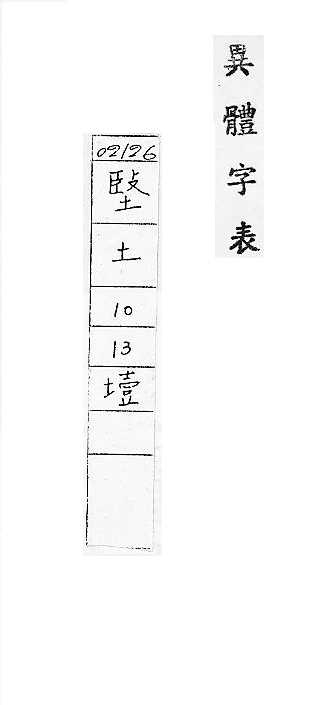 異體字表
02126
土
10
13